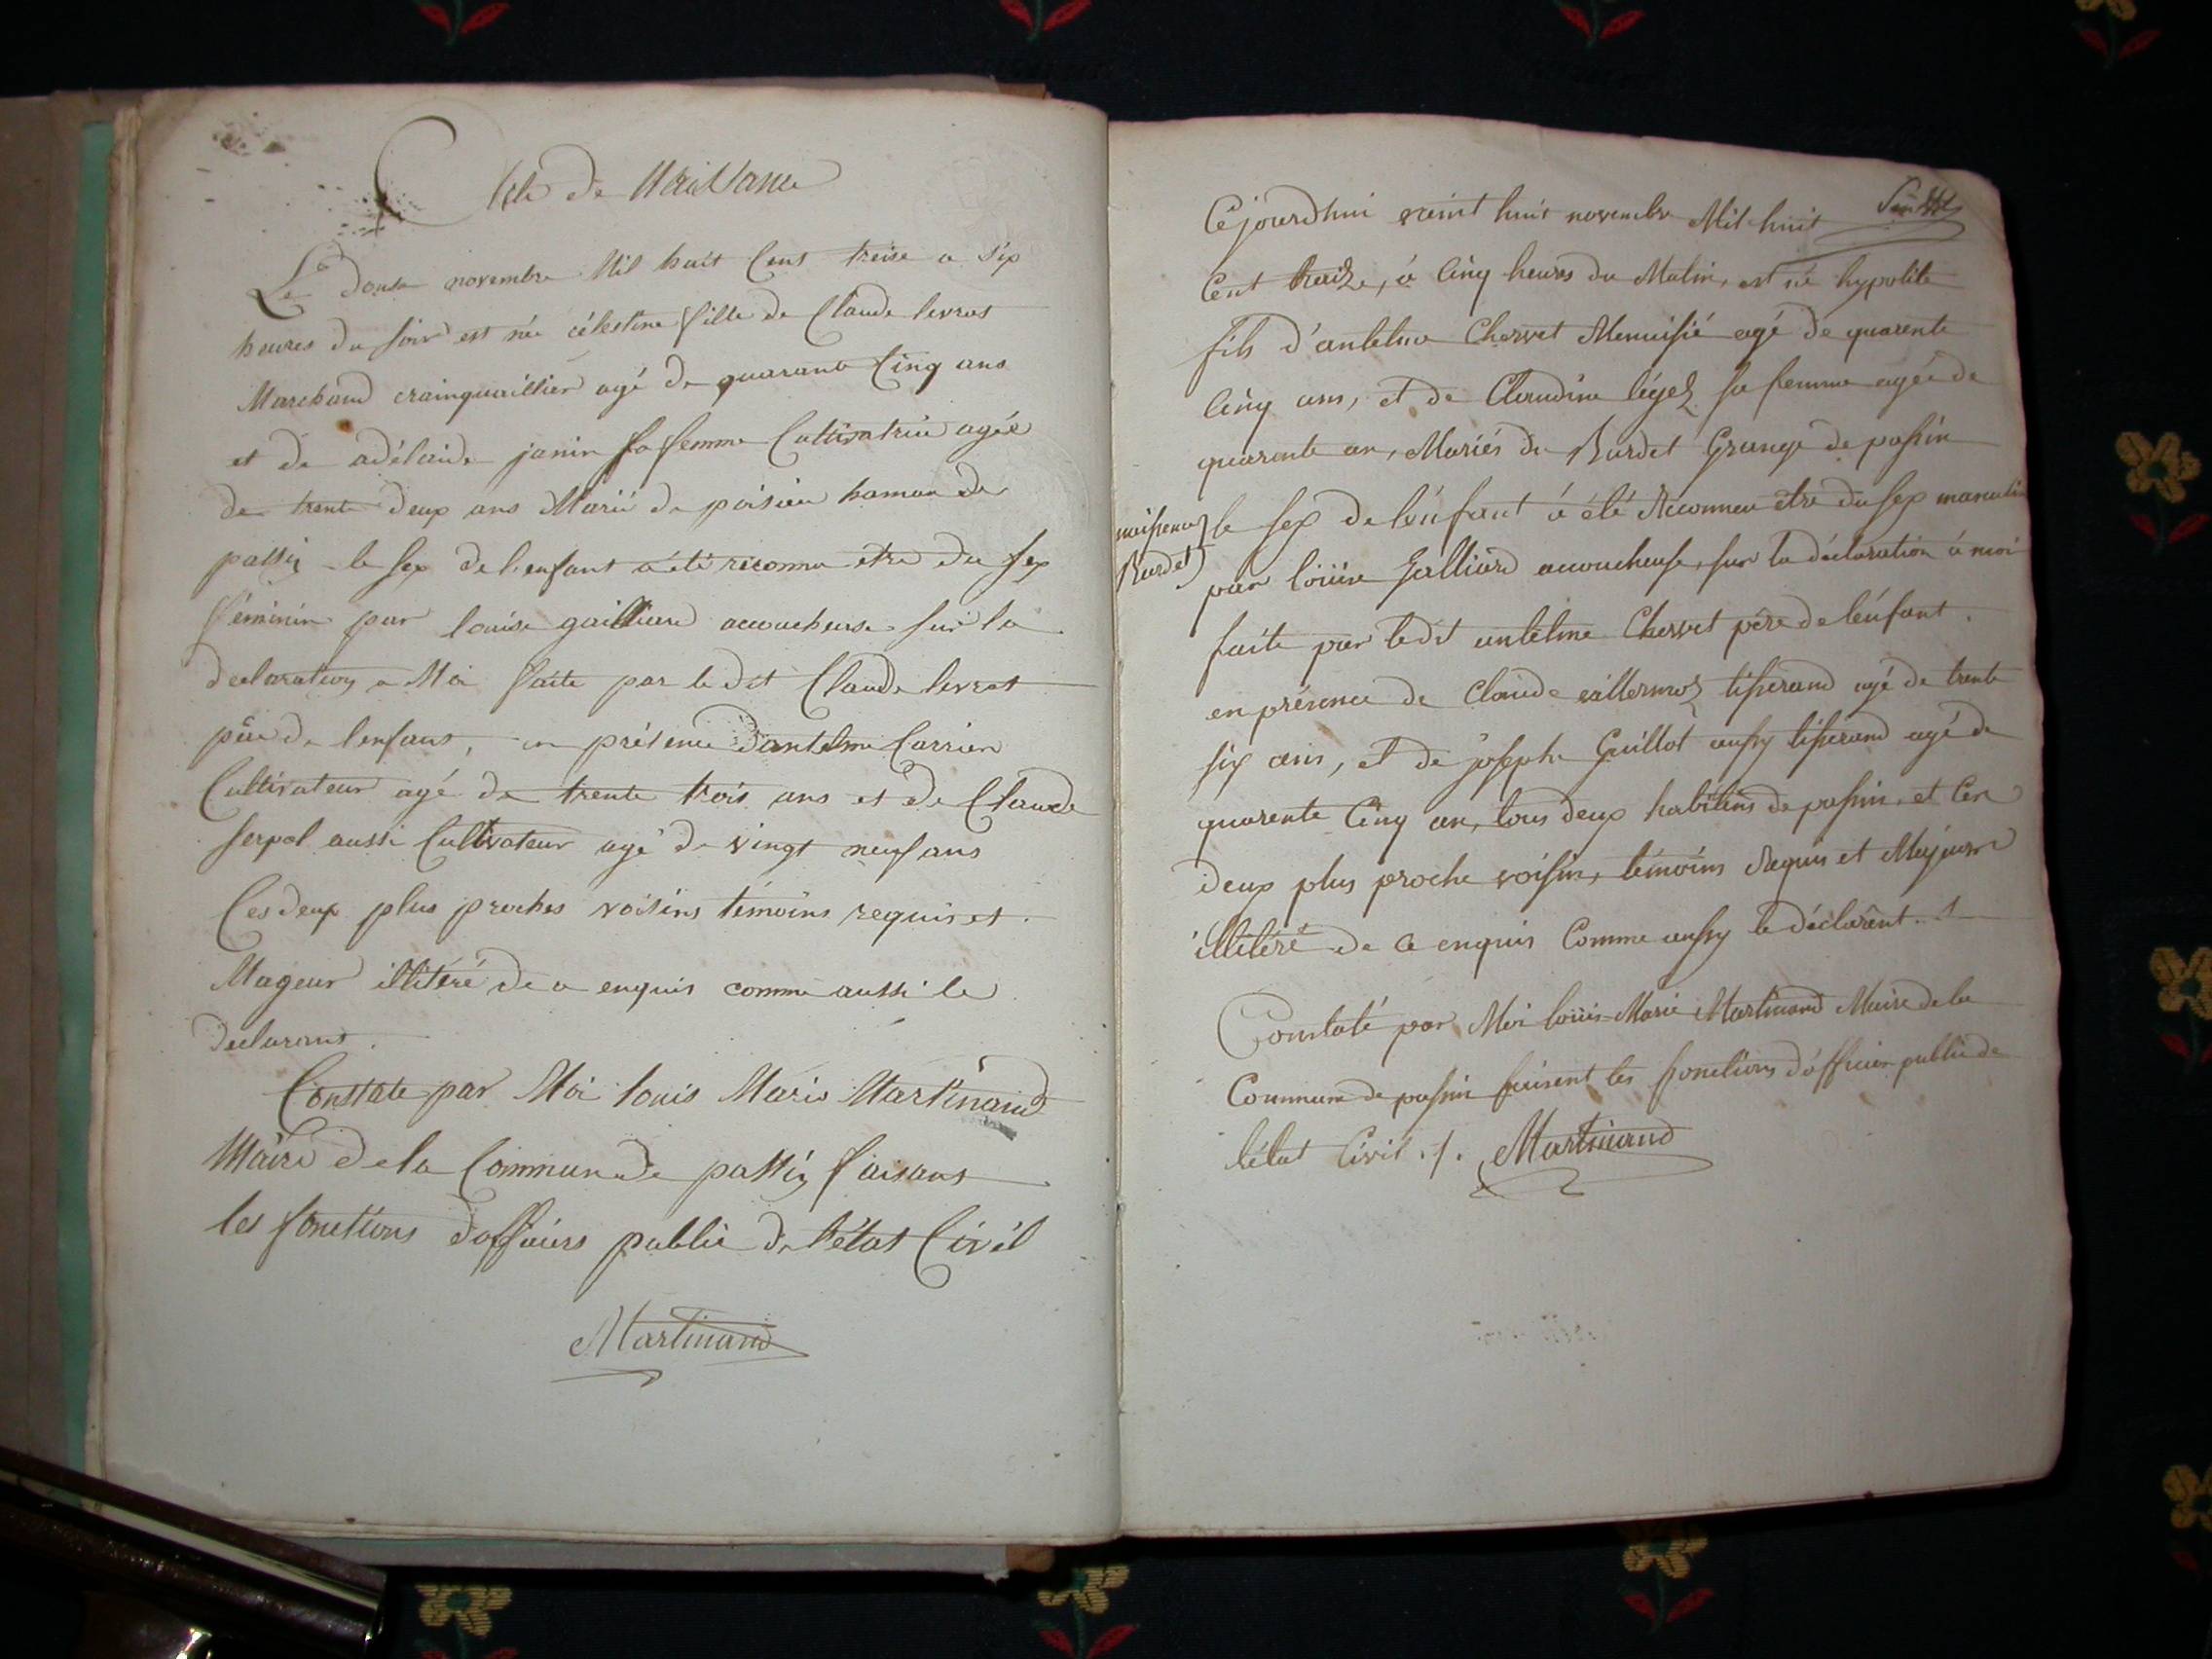 Acte de Naissance
Le douse novembre Mil huit Cent treise a six
heures du soir est née célestine fille de Claude levrat
Marchand crainquaillier agé de quarante Cinq ans
et de adélaide janin sa femme Cultivatrice agée
de trente deux ans Marié de poisieu hamau de
passin le sex de l'enfant a été reconnu etre du sex
féminin par louise gailliard accoucheuse sur la
declaration a Moi faite par le dit Claude levrat
père de lenfant, en présence dantelme Carrier
Cultivateur agé de trente trois ans et de Claude
serpol aussi Cultivateur agé de vingt neuf ans
Ces deux plus proches voisins témoins requis et
Mageur illitéré de ce enquis comme aussi le
declarant.
Constate par Moi louis Marie Martinand
Maire de la Commun de passin faisant
les fonctions dofficiers public de l'état Civil
Martinand
Cejourdhui vaint huit novembre Mil huit
Cent traize, à Cinq heures du Matin, est né hypolite
fils d'antelme Chervet Menuisié agé de quarente
Cinq ans, et de Claudine légez sa femme agée de
quarente an, Mariés du Burdet Grange de passin
naissance
Burdet
le sex de lénfant à été Reconneu être du sex masculin
par loüise Galliard acoucheuse, sur la déclaration à moi
faite par ledit antelme Chervet père de lénfant.
en présence de Claude vuillermoz tisserand agé de trente
six ans, et de josephe Guillot aussy tisserand agé de
quarente Cinq an, tous deux habitens de passin, et Ces
deux plus proche voisin, témoins Requis et Majeurs
illitéré de ce enquis Comme aussy le déclarent.
Constaté par Moi loüis Marie Martinand Maire de la
Commune de passin faisent les fonctions d'officier public de
létat Civil ./. Martinand